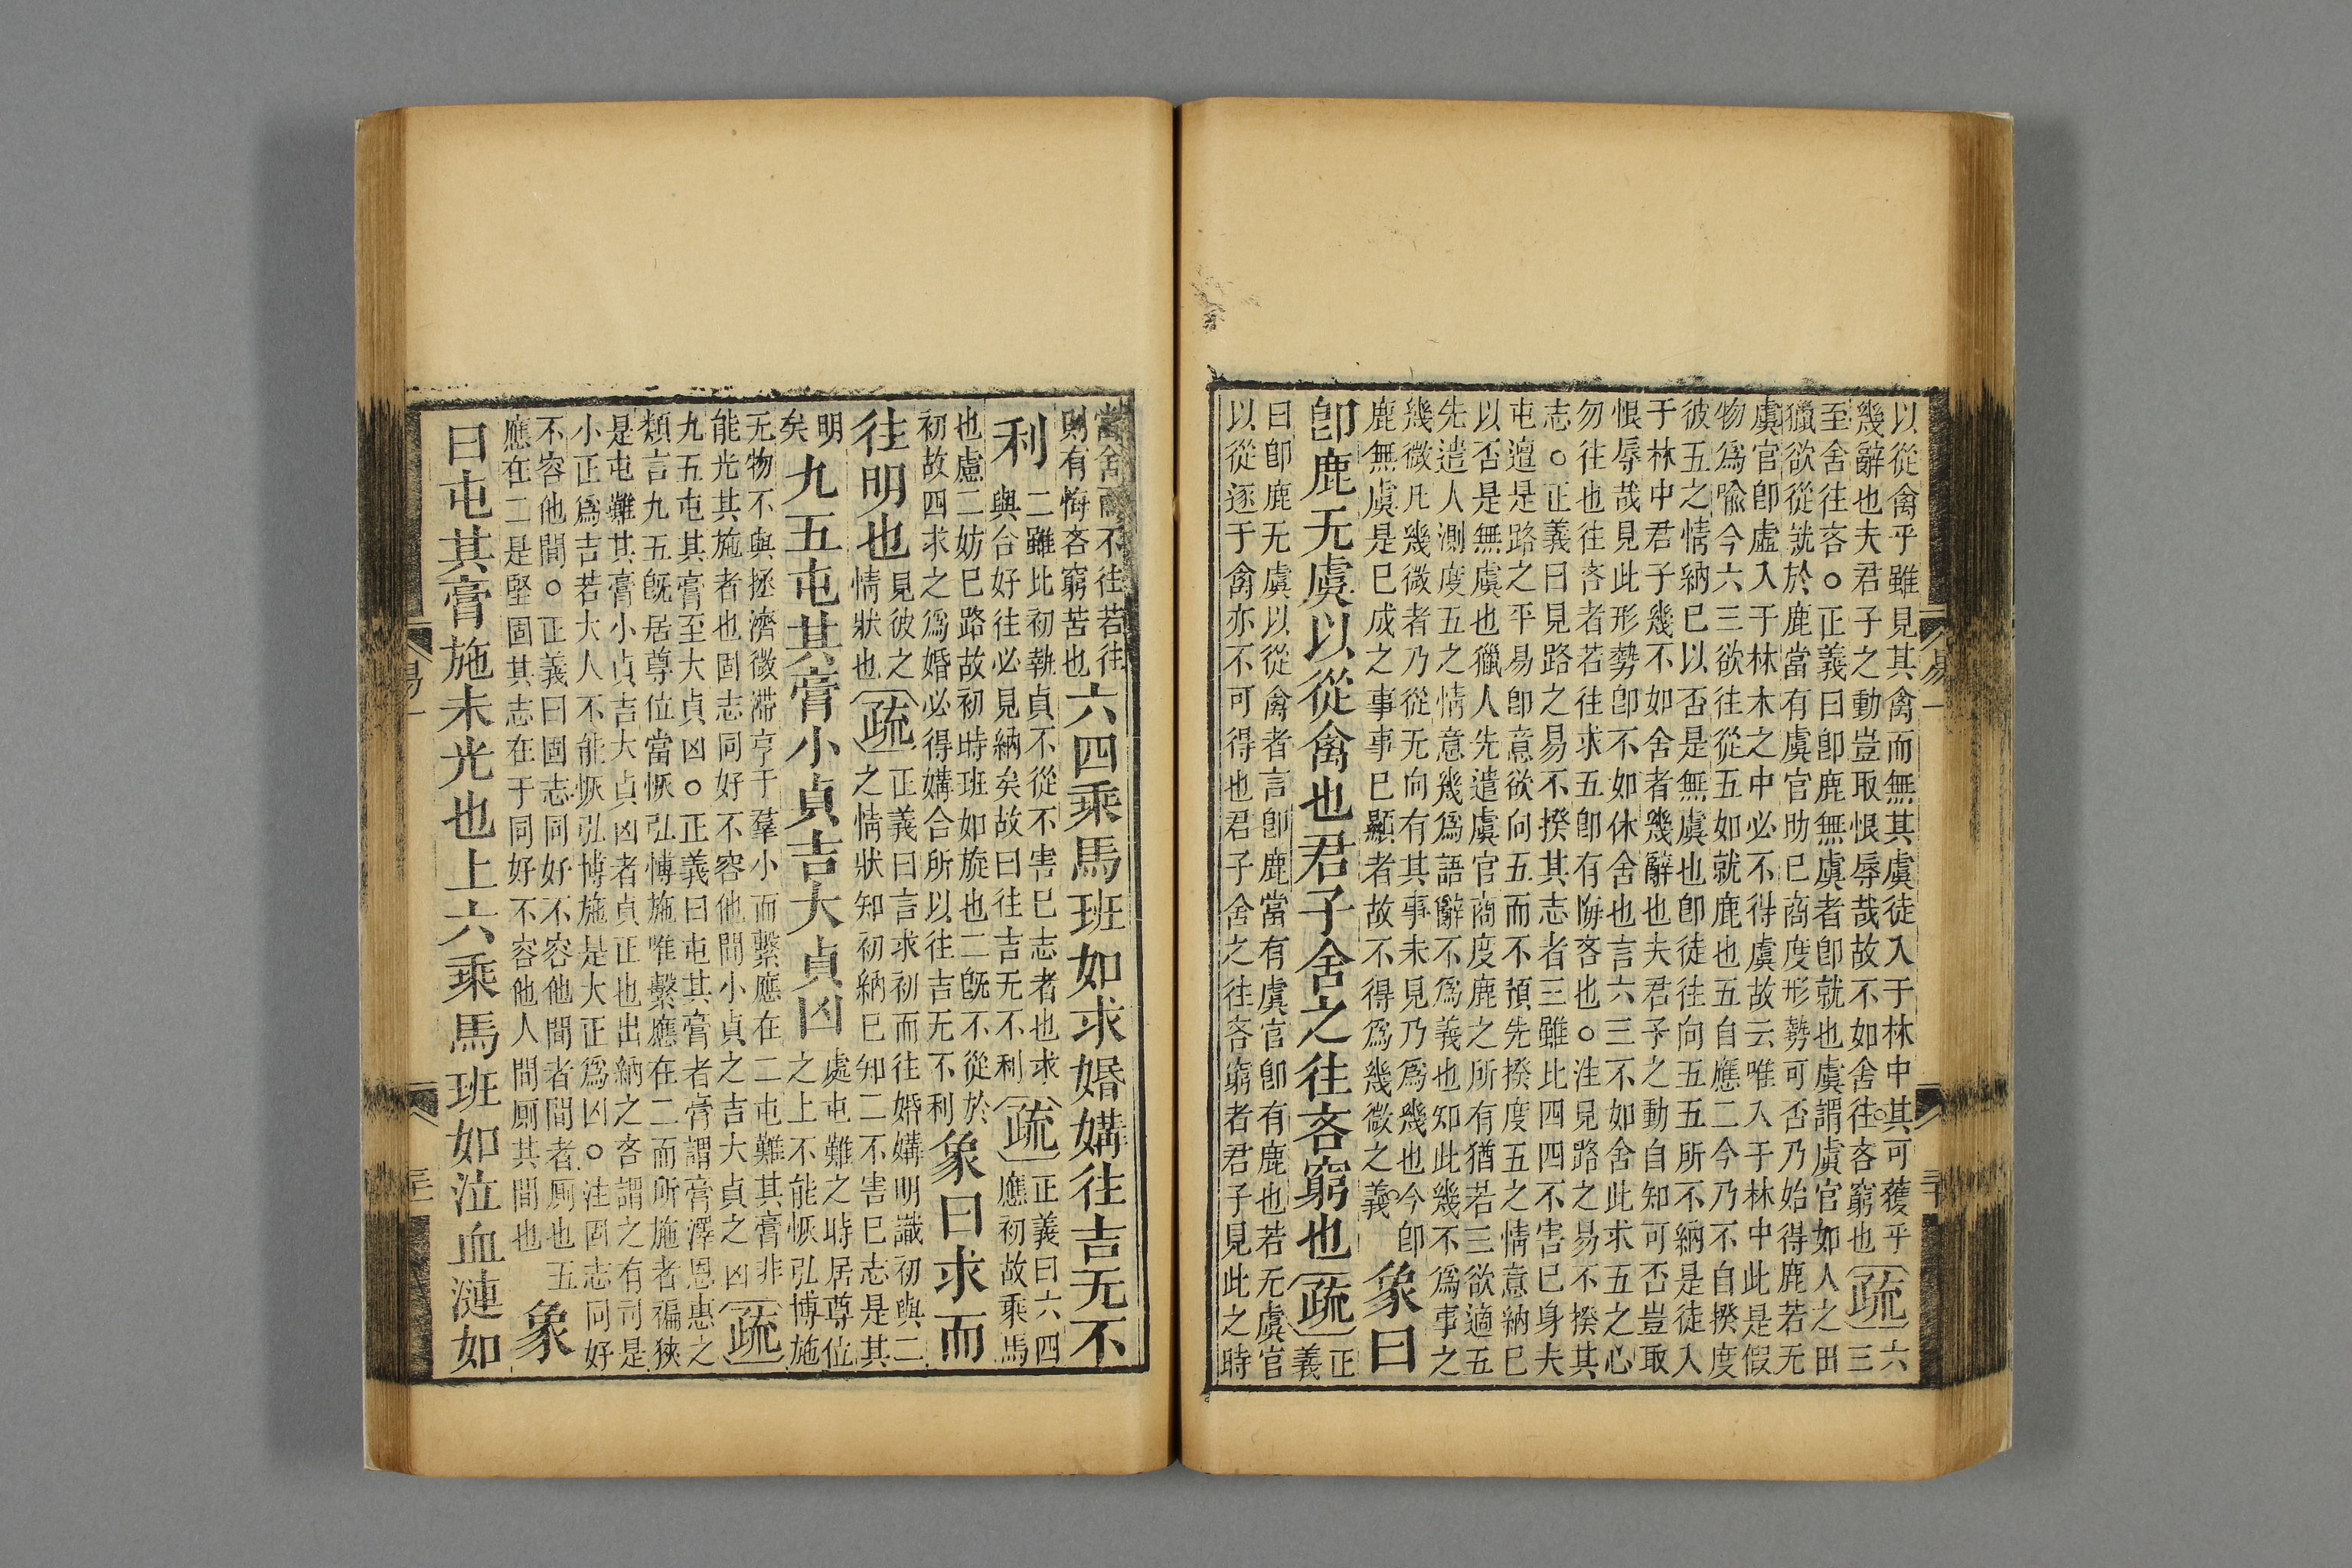 以從禽乎雖見其禽而無其虞徒入于林中其可獲乎
幾辭也夫君子之動豈取恨辱哉故不如舍往吝窮也
疏
六
三
至舍往吝○正義曰卽鹿無虞者卽就也虞謂虞官如人之田
獵欲從就於鹿當有虞官助已商度形勢可否乃始得鹿若无
虞官卽虛入于林木之中必不得虞故云唯入于林中此是假
物爲喩今六三欲往從五如就鹿也五自應二今乃不自揆度
彼五之情納已以否是無虞也卽徒往向五五所不納是徒入
于林中君子幾不如舍者幾辭也夫君子之動自知可否豈取
恨辱哉見此形勢卽不如休舍也言六三不如舍此求五之心
勿往也往吝者若往求五卽有悔吝也○注見路之易不揆其
志○正義曰見路之易不揆其志者三雖比四四不害已身夫
屯邅是路之平易卽意欲向五而不預先揆度五之情意納已
以否是無虞也獵人先遣虞官商度鹿之所有猶若三欲適五
先遣人測度五之情意幾爲語辭不爲義也知此幾不爲事之
幾微凡幾微者乃從无向有其事未見乃爲幾也今卽
鹿無虞是已成之事事已顯者故不得爲幾微之義
象曰
卽鹿无虞以從禽也君子舍之往吝窮也
疏
正
義
曰卽鹿无虞以從禽者言卽鹿當有虞官卽有鹿也若无虞官
以從逐于禽亦不可得也君子舍之往吝窮者君子見此之時
易一
三十
當舍而不往若往
則有悔吝窮苦也
六四乘馬班如求婚媾往吉无不
利
二雖比初執貞不從不害已志者也求
與合好往必見納矣故曰往吉无不利
疏
正義曰六四
應初故乘馬
也慮二妨已路故初時班如旋也二旣不從於
初故四求之爲婚必得媾合所以往吉无不利
象曰求而
往明也
見彼之
情狀也
疏
正義曰言求初而往婚媾明識初與二
之情狀知初納已知二不害已志是其
明
矣
九五屯其膏小貞吉大貞凶
處屯難之時居尊位
之上不能恢弘博施
无物不與拯濟微滯亨于羣小而繫應在二屯難其膏非
能光其施者也固志同好不容他間小貞之吉大貞之凶
疏
九五屯其膏至大貞凶○正義曰屯其膏者膏謂膏澤恩惠之
類言九五旣居尊位當恢弘博施唯繫應在二而所施者褊狹
是屯難其膏小貞吉大貞凶者貞正也出納之吝謂之有司是
小正爲吉若大人不能恢弘博施是大正爲凶○注固志同好
不容他間○正義曰固志同好不容他間者間者厠也五
應在二是堅固其志在于同好不容他人間厠其間也
象
曰屯其膏施未光也上六乘馬班如泣血漣如
易一